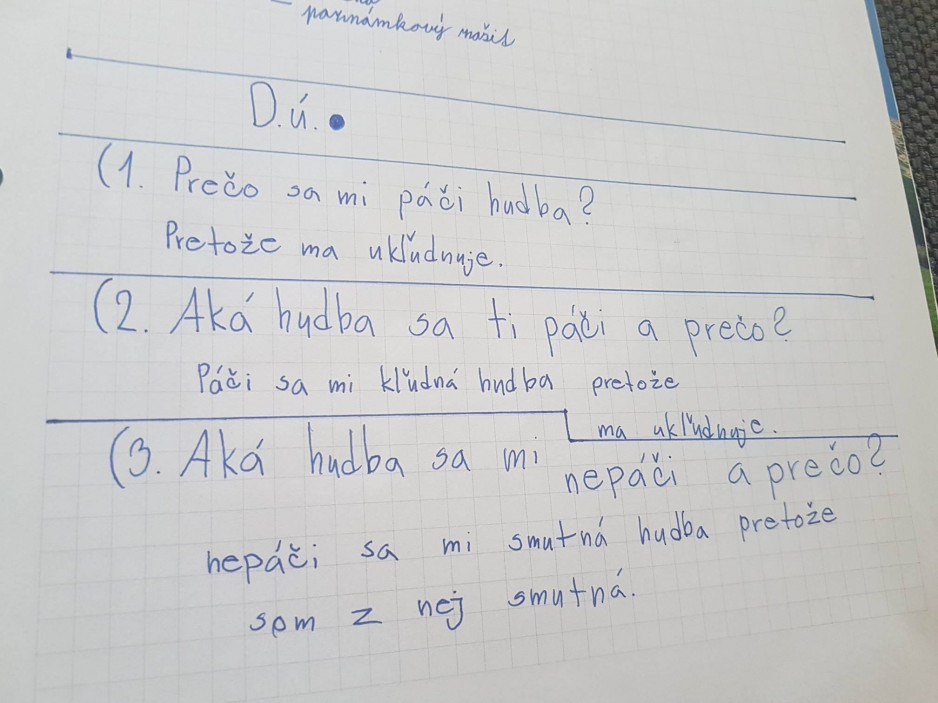 poznámkový mošit
D.ú.
(1. Prečo sa mi páči hudba?
Pretože ma ukľudnuje.
(2. Aká hudba sa ti páči a prečo?
Páči sa mi kľudná hudba pretože
ma ukľudnuje.
(3. Aká hudba sa mi nepáči a prečo?
nepáči sa mi smutná hudba pretože
som z nej smutná.